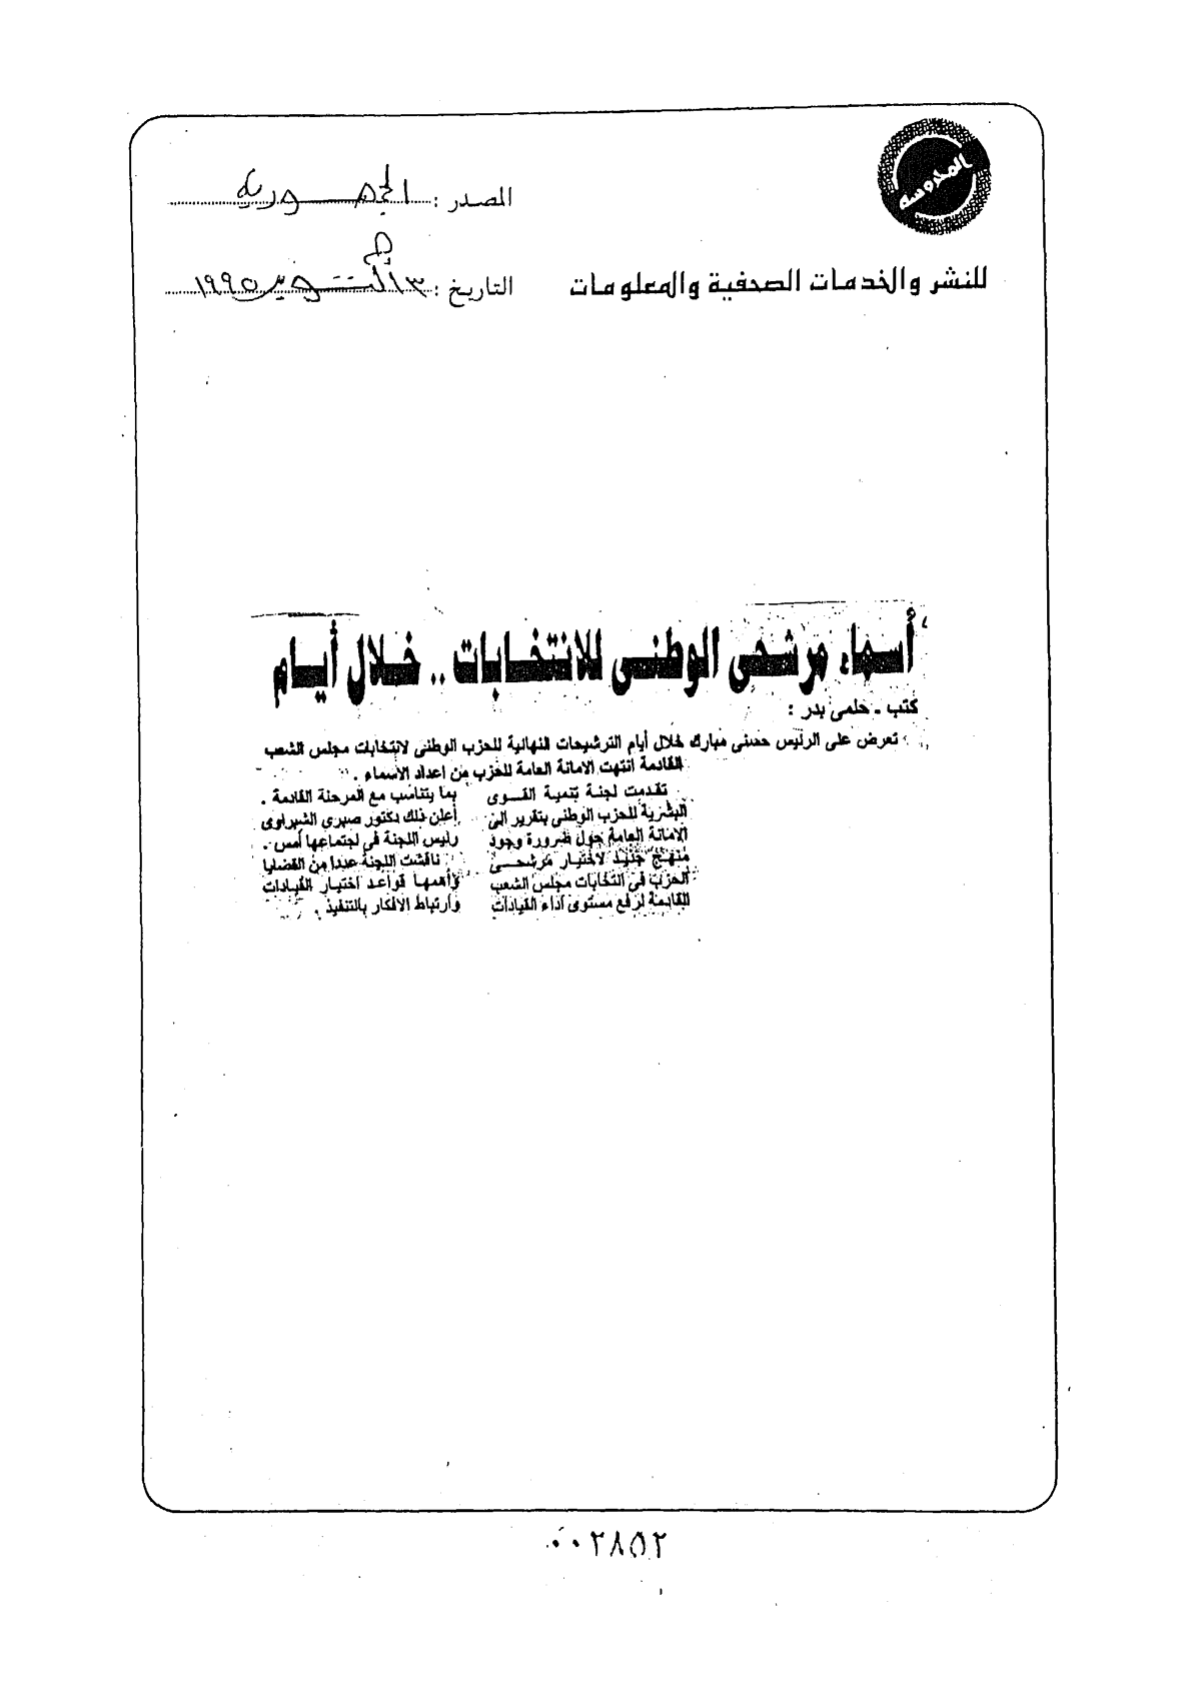 المحروسة
المصدر : الجمهورية
للنشر والخدمات الصحفية والمعلومات
التاريخ : ١٣ أكتوبر ١٩٩٥
أسماء مرشحى الوطنى للانتخابات .. خلال أيام
كتب - حلمى بدر :
تعرض على الرئيس حسنى مبارك خلال أيام الترشيحات النهائية للحزب الوطنى لانتخابات مجلس الشعب
القادمة انتهت الامانة العامة للحزب من اعداد الأسماء .
تقدمت لجنة تنمية القوى
البشرية للحزب الوطنى بتقرير الى
الامانة العامة حول ضرورة وجود
منهج جديد لاختيار مرشحى
الحزب فى انتخابات مجلس الشعب
القادمة لرفع مستوى اداء القيادات
بما يتناسب مع المرحلة القادمة .
أعلن ذلك دكتور صبرى الشبراوى
رئيس اللجنة فى اجتماعها أمس .
ناقشت اللجنة عددا من القضايا
وأهمها قواعد اختيار القيادات
وارتباط الافكار بالتنفيذ .
٠٠٢٨٥٢